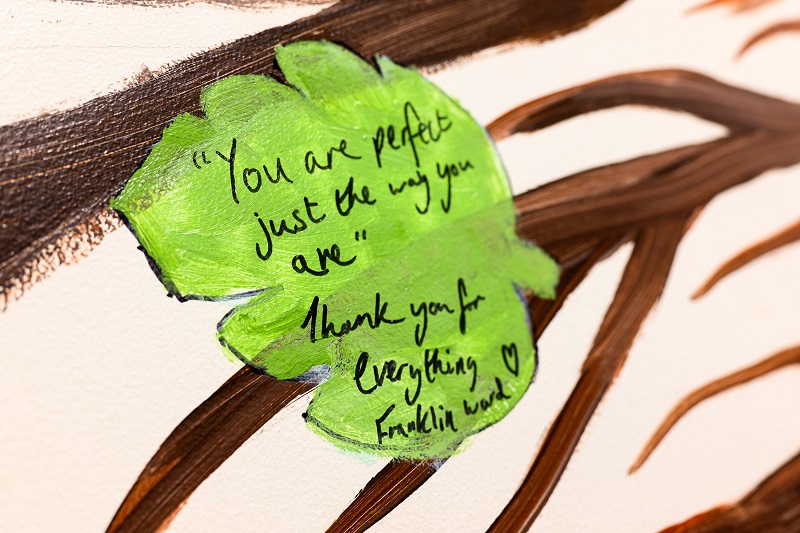 "You are perfect
just the way you
are"
Thank you for
everything ♡
Franklin ward